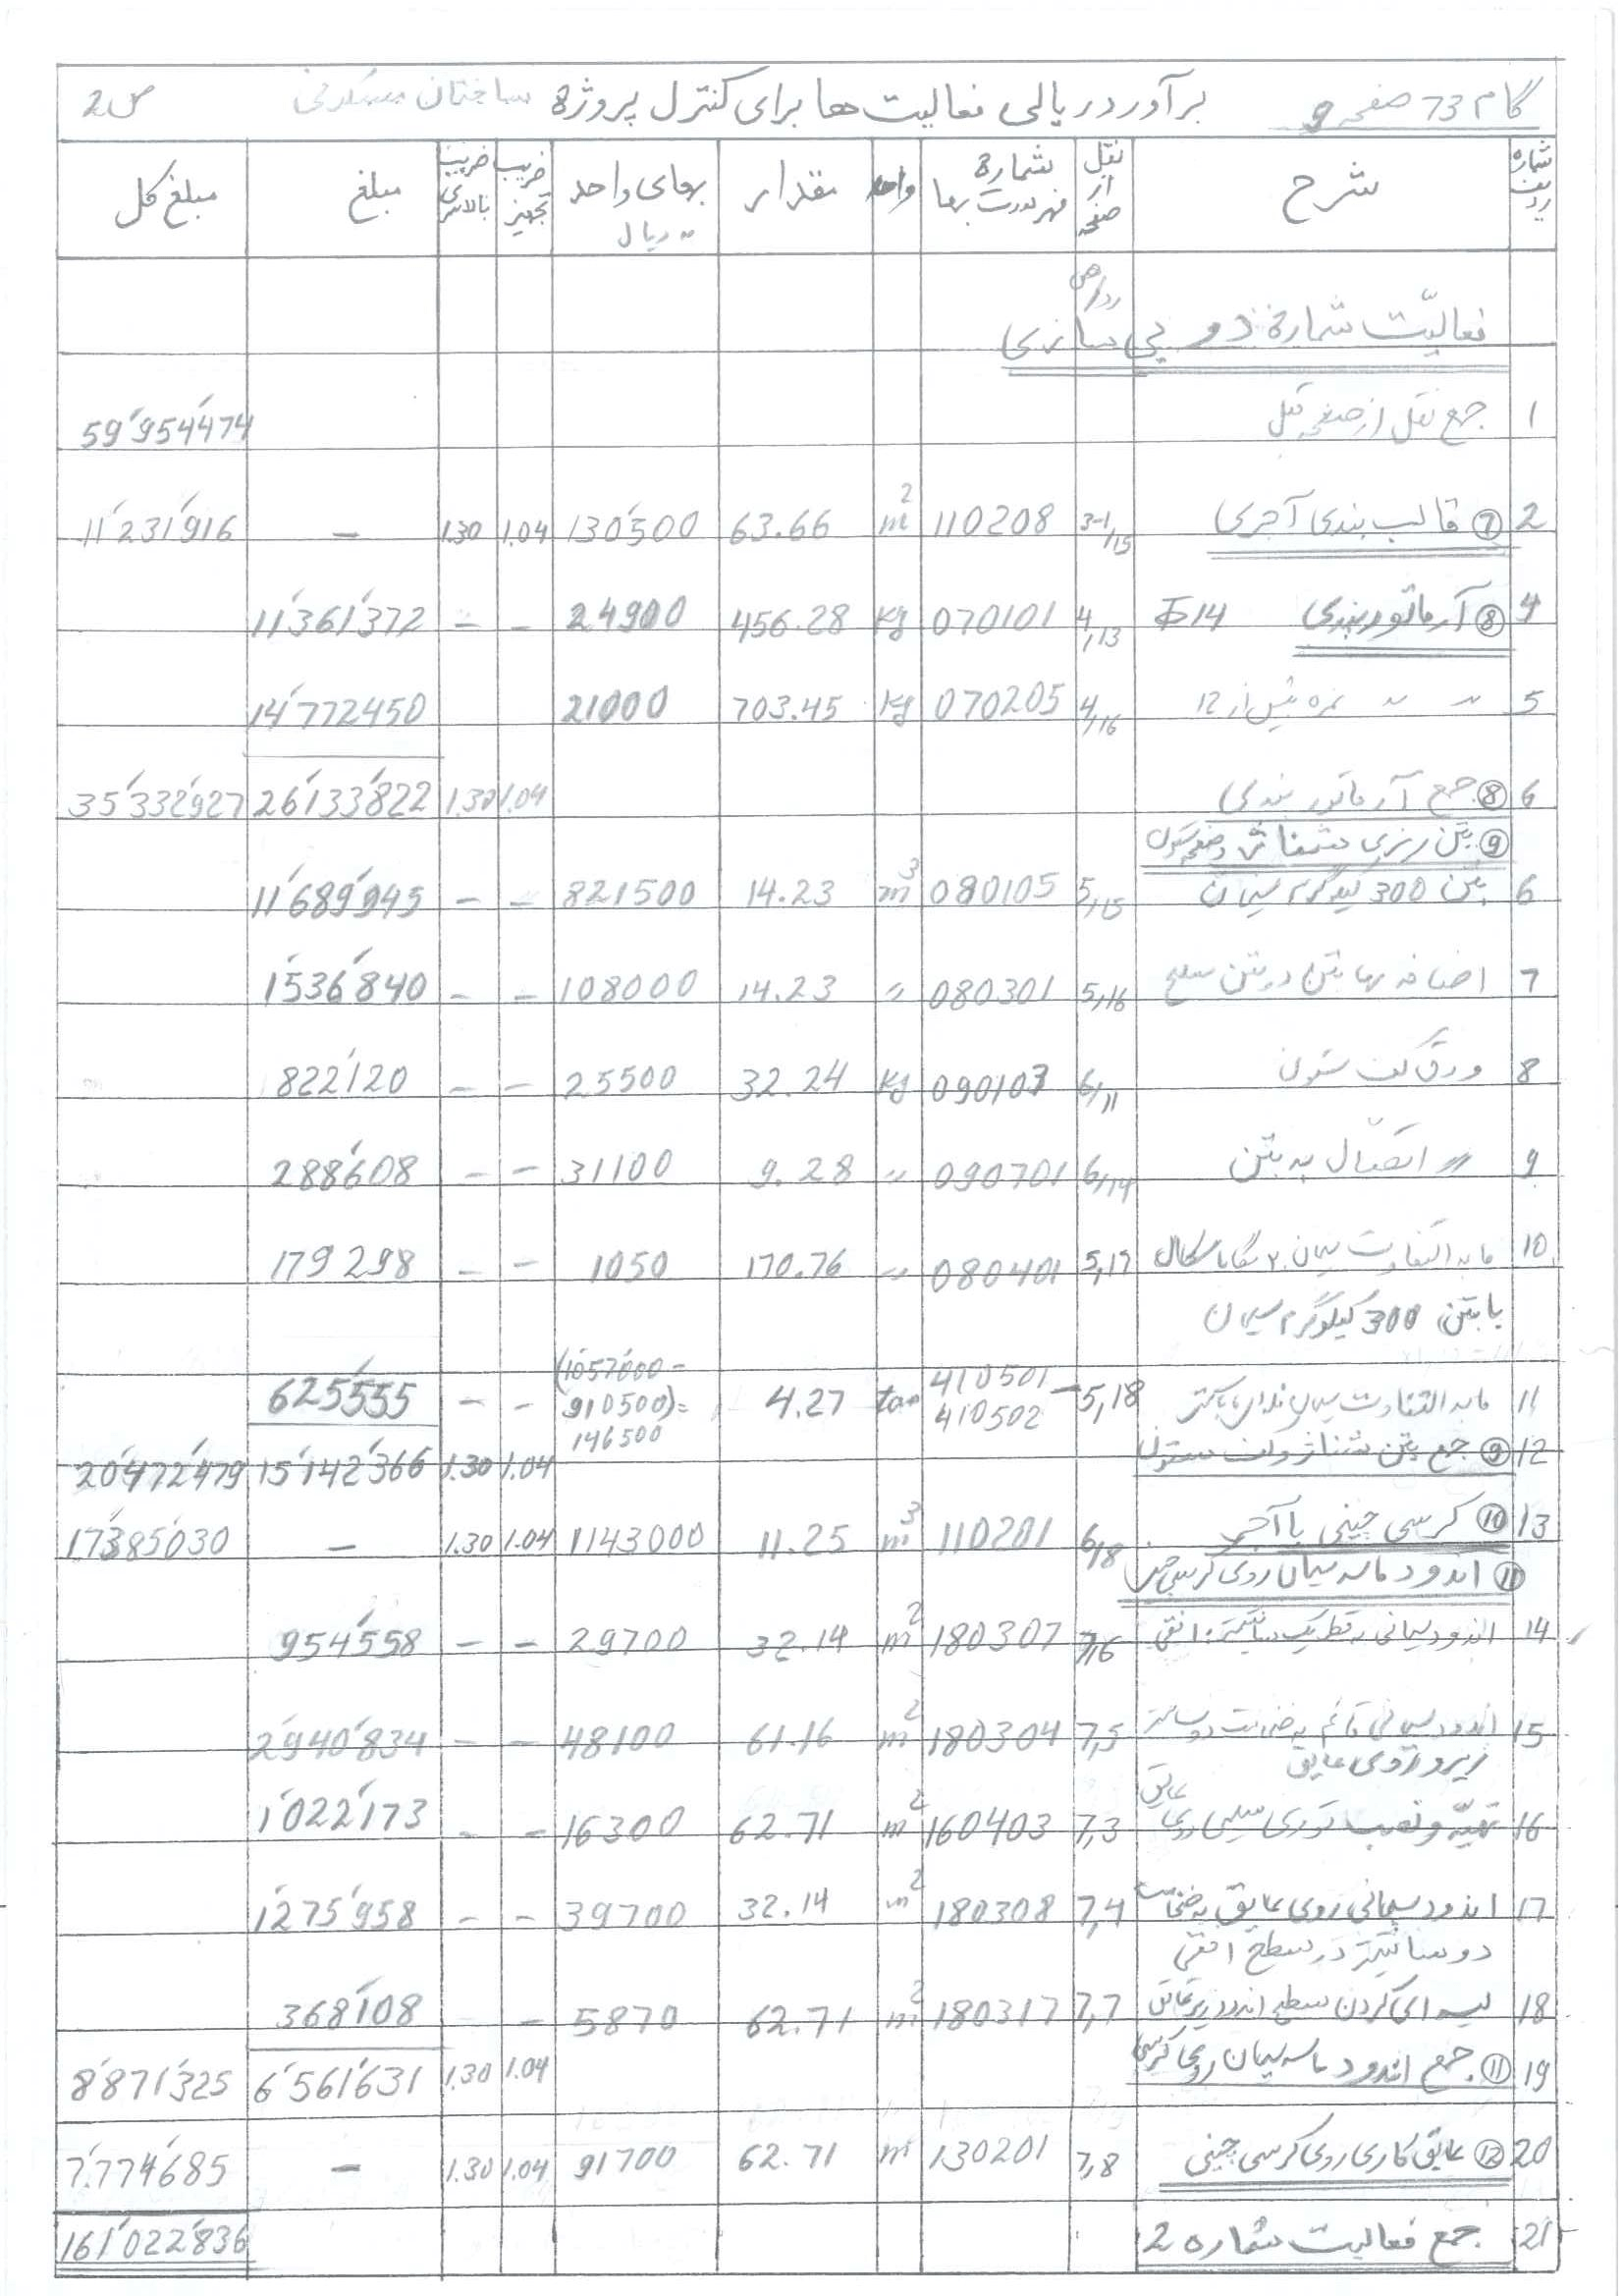 گام 73 صفحه 9 برآورد ریالی فعالیت ها برای کنترل پروژه ساختمان مسکونی ص 2
شماره ردیف شرح نقل از صفحه شماره فهرست بها واحد مقدار بهای واحد به ریال ضریب تجهیز ضریب بالاسری مبلغ مبلغ کل
فعالیّت شماره دو پی سازی
1 جمع نقل از صفحه قبل 59'954'474
2 ⑦ قالب بندی آجری 3-1/15 110208 m2 63.66 130'500 1.04 1.30 – 11'231'916
4 ⑧ آرماتوربندی Φ14 4/13 070101 kg 456.28 24900 – – 11'361'372
5 〃 〃 نمره بیش از 12 4/16 070205 kg 703.45 21000 14'772450
6 ⑧ جمع آرماتور بندی 1.04 1.30 26'133'822 35'332'927
⑨ بتن ریزی شناژ و صفحه ستون
6 بتن 300 کیلوگرم سیمان 5/15 080105 m3 14.23 821500 – – 11'689'945
7 اضافه بها بتن در بتن مسلح 5/16 080301 〃 14.23 108000 – – 1'536'840
8 ورق کف ستون 6/11 090103 kg 32.24 25500 – – 822'120
9 〃 اتصّال به بتن 6/14 090701 〃 9.28 31100 – – 288'608
10 مابه التفاوت سیمان 5,17 080401 〃 170.76 1050 – – 179298
با بتن 300 کیلوگرم سیمان
11 مابه التفاوت سیمان 5,18 410501 – 410502 ton 4.27 (1057'000 – 910500) = 146500 – – 625'555
12 ⑨ جمع بتن شناژ و کف ستون 1.04 1.30 15'142'366 20'472'479
13 ⑩ کرسی چینی با آجر 6/8 110201 m3 11.25 1143000 1.04 1.30 – 17'385'030
⑪ اندود ماسه سیمان روی کرسی چینی
14 اندود سیمانی به قطر یک سانتیمتر افقی 7,6 180307 m2 32.14 29700 – – 954'558
15 اندود سیمانی قائم به ضخامت دو سانتیمتر 7,5 180304 m2 61.16 48100 – – 2'940'834
زیر و روی عایق
16 تهیّه و نصب توری سیمی روی عایق 7,3 160403 m2 62.71 16300 – – 1'022'173
17 اندود سیمانی روی عایق به ضخامت 7,4 180308 m2 32.14 39700 – – 1'275'958
دو سانتیمتر در سطح افقی
18 لیسه ای کردن سطح اندود زیر عایق 7,7 180317 m2 62.71 5870 – 368'108
19 ⑪ جمع اندود ماسه سیمان روی کرسی 1.04 1.30 6'561'631 8'871'325
20 ⑫ عایق کاری روی کرسی چینی 7,8 130201 m2 62.71 91700 1.04 1.30 – 7.774'685
21 جمع فعالیت شماره 2 161'022'836